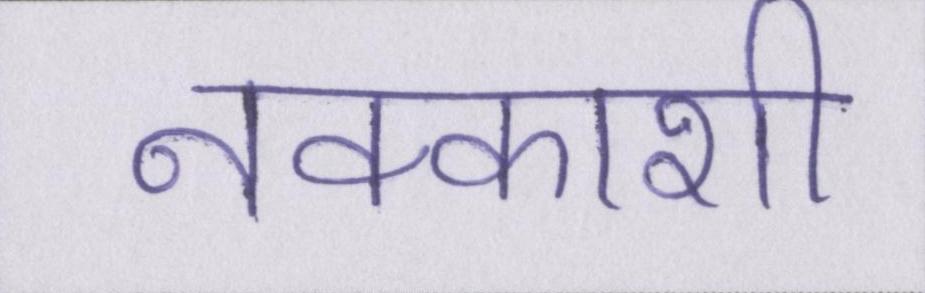 नक्काशी